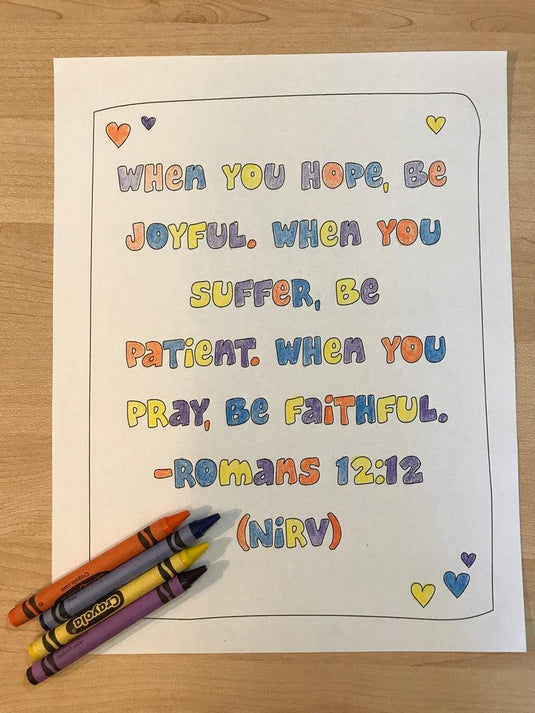 When you hope, be
joyful. When you
suffer, be
patient. When you
pray, be faithful.
-Romans 12:12
(NiRV)
Crayola